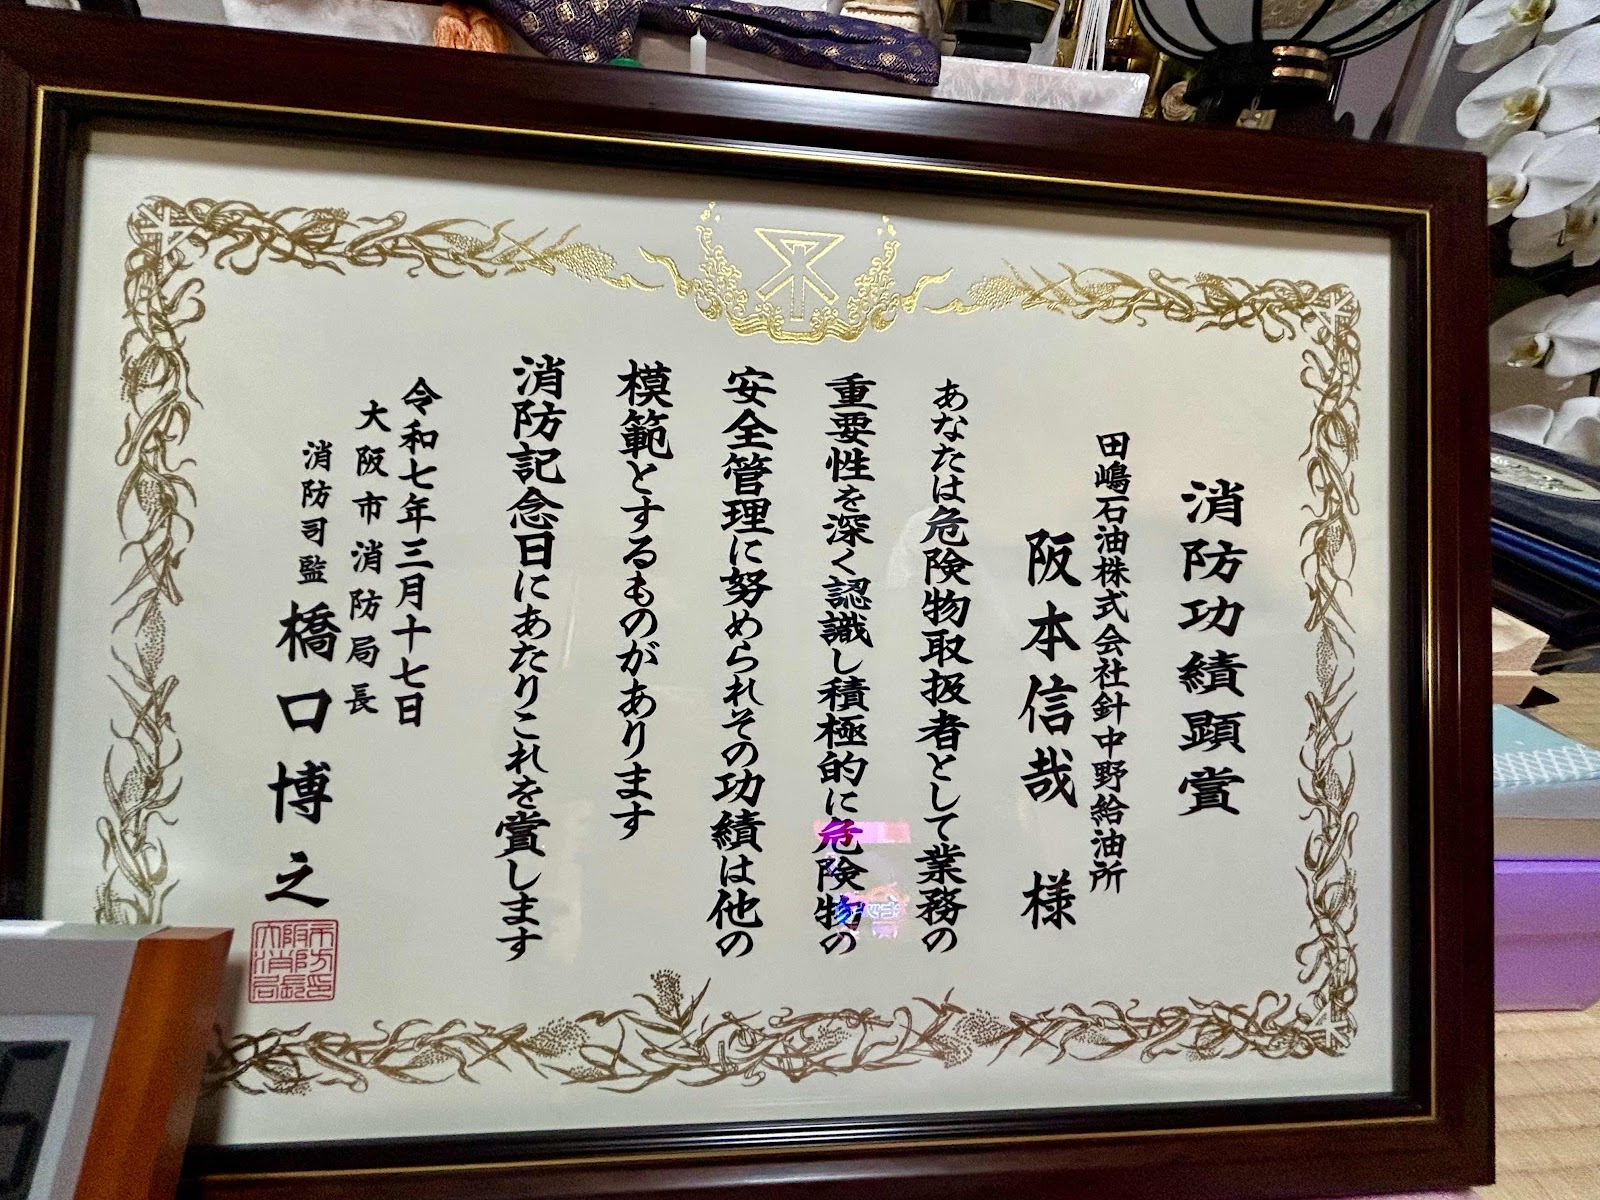 消防功績顕賞
田嶋石油株式会社針中野給油所
阪本信哉 様
あなたは危険物取扱者として業務の
重要性を深く認識し積極的に危険物の
安全管理に努められその功績は他の
模範とするものがあります
消防記念日にあたりこれを賞します
令和七年三月十七日
大阪市消防局長
消防司監 橋口博之
大阪市消防局長印